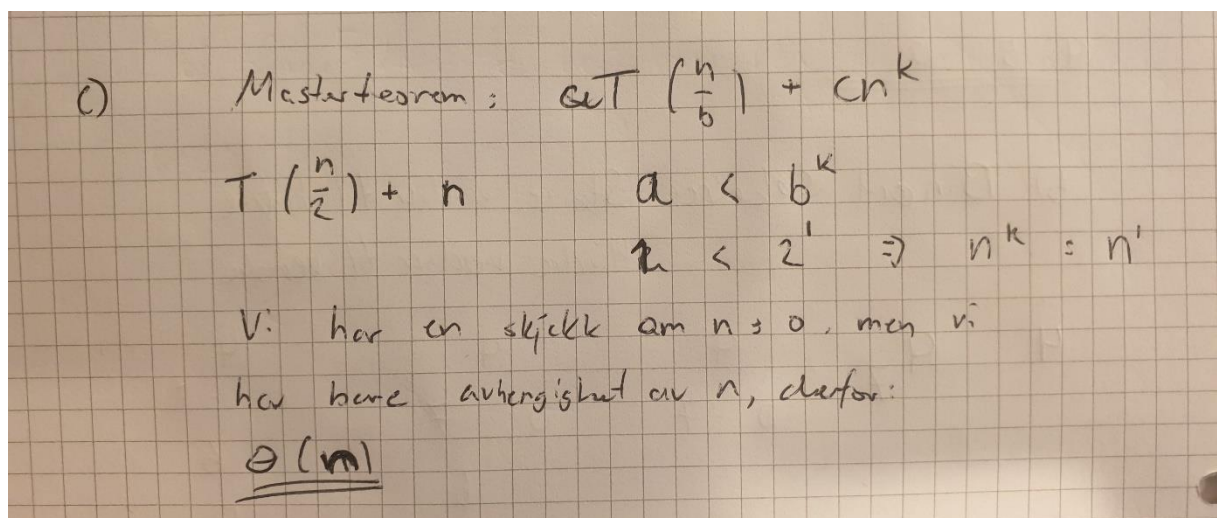 c) Masterteorem: aT (n/b) + cn^k
T (n/2) + n a < b^k
1 < 2^1 => n^k = n^1
Vi har en skjekk om n = 0, men vi
har bare avhengighet av n, derfor:
Θ(n)